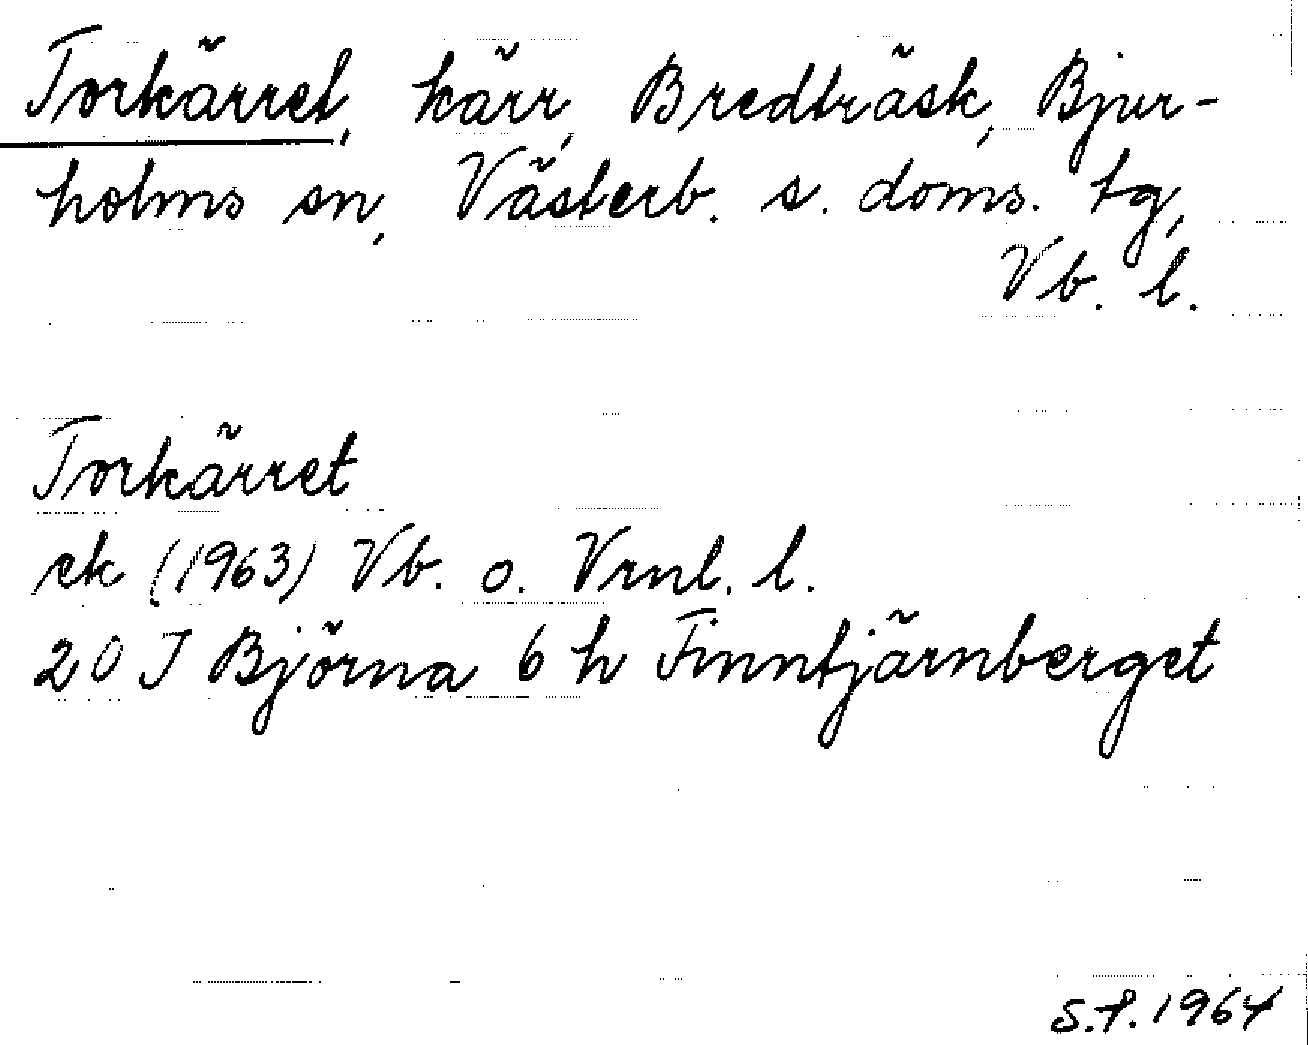 Torkärret, kärr, Bredträsk, Bjur-
holms sn, Västerb. s. doms. tg,
Vb. l.
Torkärret
ek (1963) Vb. o. Vrnl. l.
20 J Björna 6 h Finntjärnberget
S.P. 1964